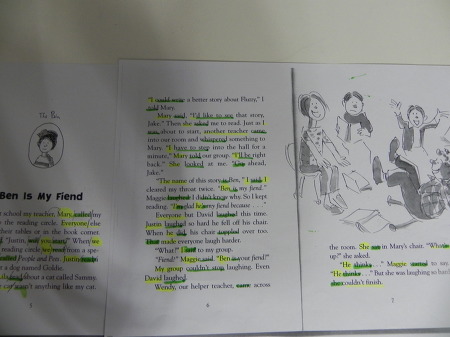 Ben Is My Fiend
school my teacher, Mary, called my
the reading circle. Everyone else
their tables or in the corner.
"Justin, will you start?" When we
reading circle we read from a spe-
called People and Pets. Justin
a dog named Goldie.
read about a cat called Sammy.
cat wasn't anything like my cat.
5
"I could write a better story about Fluzzy," I
told Mary.
Mary said, "I'd like to see that story,
Jake." Then she asked me to read. Just as I
was about to start, another teacher came
into our room and whispered something to
Mary. "I have to step into the hall for a
minute," Mary told our group. "I'll be right
back." She looked at me. "Go ahead,
Jake."
"The name of this story is Ben," I said. I
cleared my throat twice. "Ben is my fiend."
Maggie laughed. I didn't know why. So I kept
reading. "I'm glad he's my fiend because . . ."
Everyone but David laughed this time.
Justin laughed so hard he fell off his chair.
When he did his chair toppled over too.
That made everyone laugh harder.
"What?" I said to my group.
"Fiend?" Maggie said. "Ben is your fiend?"
My group couldn't stop laughing. Even
David laughed.
Wendy, our helper teacher, came across
6
the room. She sat in Mary's chair. "What's
up?" she asked.
"He thinks . . ." Maggie started to say.
"He thinks . . ." But she was laughing so hard
she couldn't finish.
7